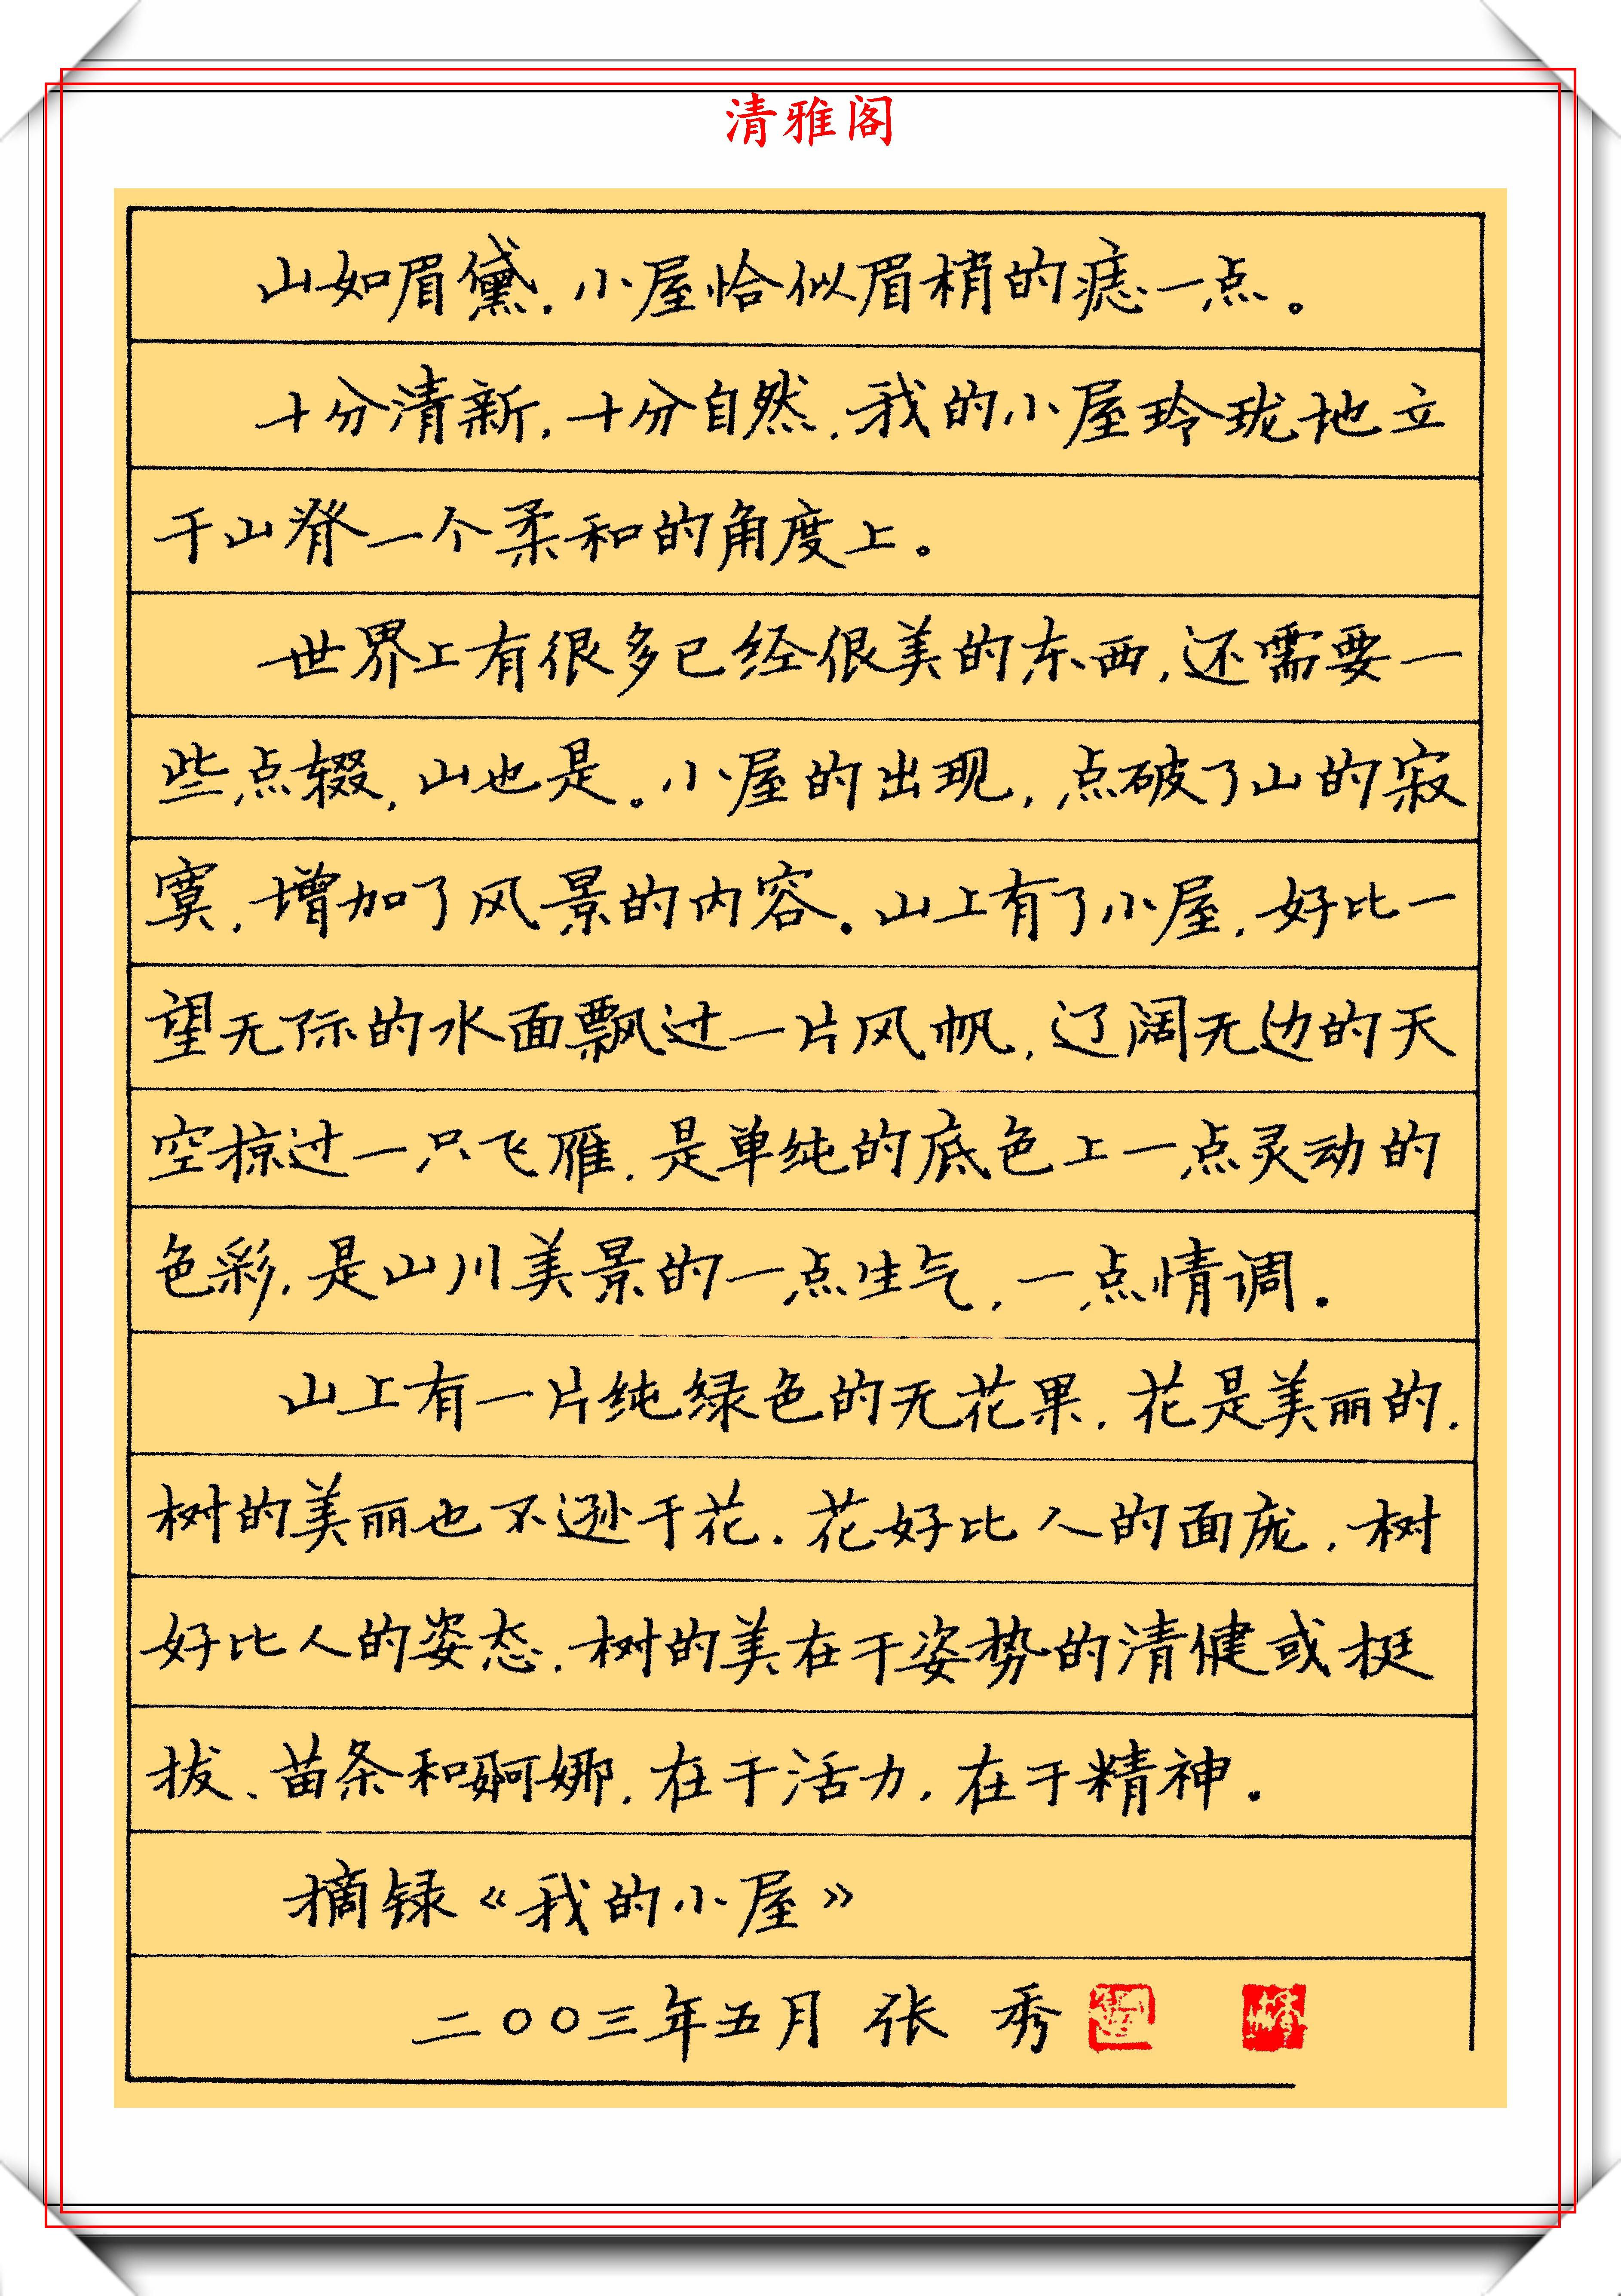 清雅阁
山如眉黛,小屋恰似眉梢的痣一点。
十分清新,十分自然,我的小屋玲珑地立
于山脊一个柔和的角度上。
世界上有很多已经很美的东西,还需要一
些点辍,山也是。小屋的出现,点破了山的寂
寞,增加了风景的内容。山上有了小屋,好比一
望无际的水面飘过一片风帆,辽阔无边的天
空掠过一只飞雁,是单纯的底色上一点灵动的
色彩,是山川美景的一点生气,一点情调.
山上有一片纯绿色的无花果,花是美丽的,
树的美丽也不逊于花.花好比人的面庞,树
好比人的姿态.树的美在于姿势的清健或挺
拔、苗条和婀娜,在于活力,在于精神.
摘录《我的小屋》
二〇〇三年五月 张 秀